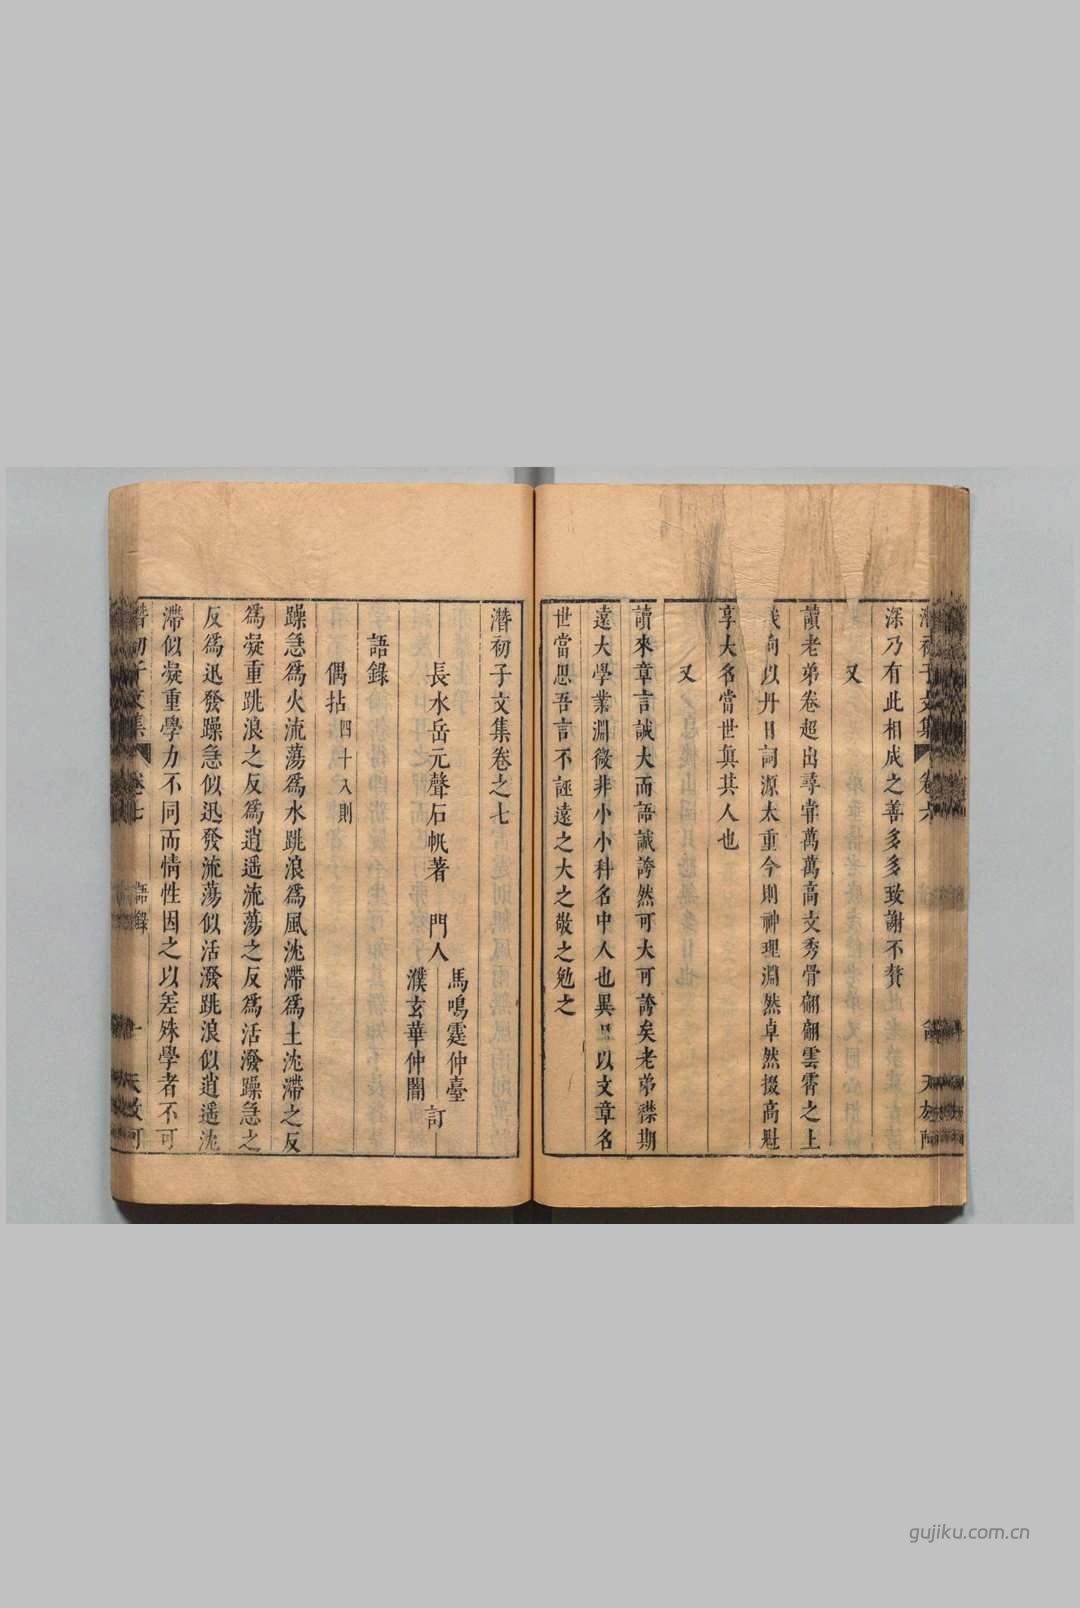 潛初子文集 卷六
深乃有此相成之善多多致謝不贅
又
讀老弟卷超出尋常萬萬高文秀骨翩翩雲霄之上
向以丹日詞源太重今則神理淵然卓然掇高魁
享大名當世眞其人也
又
讀來章言誠大而語誠誇然可大可誇矣老弟襟期
遠大學業淵微非小小科名中人也異日以文章名
世當思吾言不誣遠之大之敬之勉之
潛初子文集卷之七
長水岳元聲石帆著 門人 馬鳴霆仲臺 濮玄華仲闇 訂
語錄
偶拈四十八則
躁急爲火流蕩爲水跳浪爲風沈滯爲土沈滯之反
爲凝重跳浪之反爲逍遥流蕩之反爲活潑躁急之
反爲迅發躁急似迅發流蕩似活潑跳浪似逍遥沈
滯似凝重學力不同而情性因之以差殊學者不可
潛初子文集 卷七 語錄 一 天放可
gujiku.com.cn